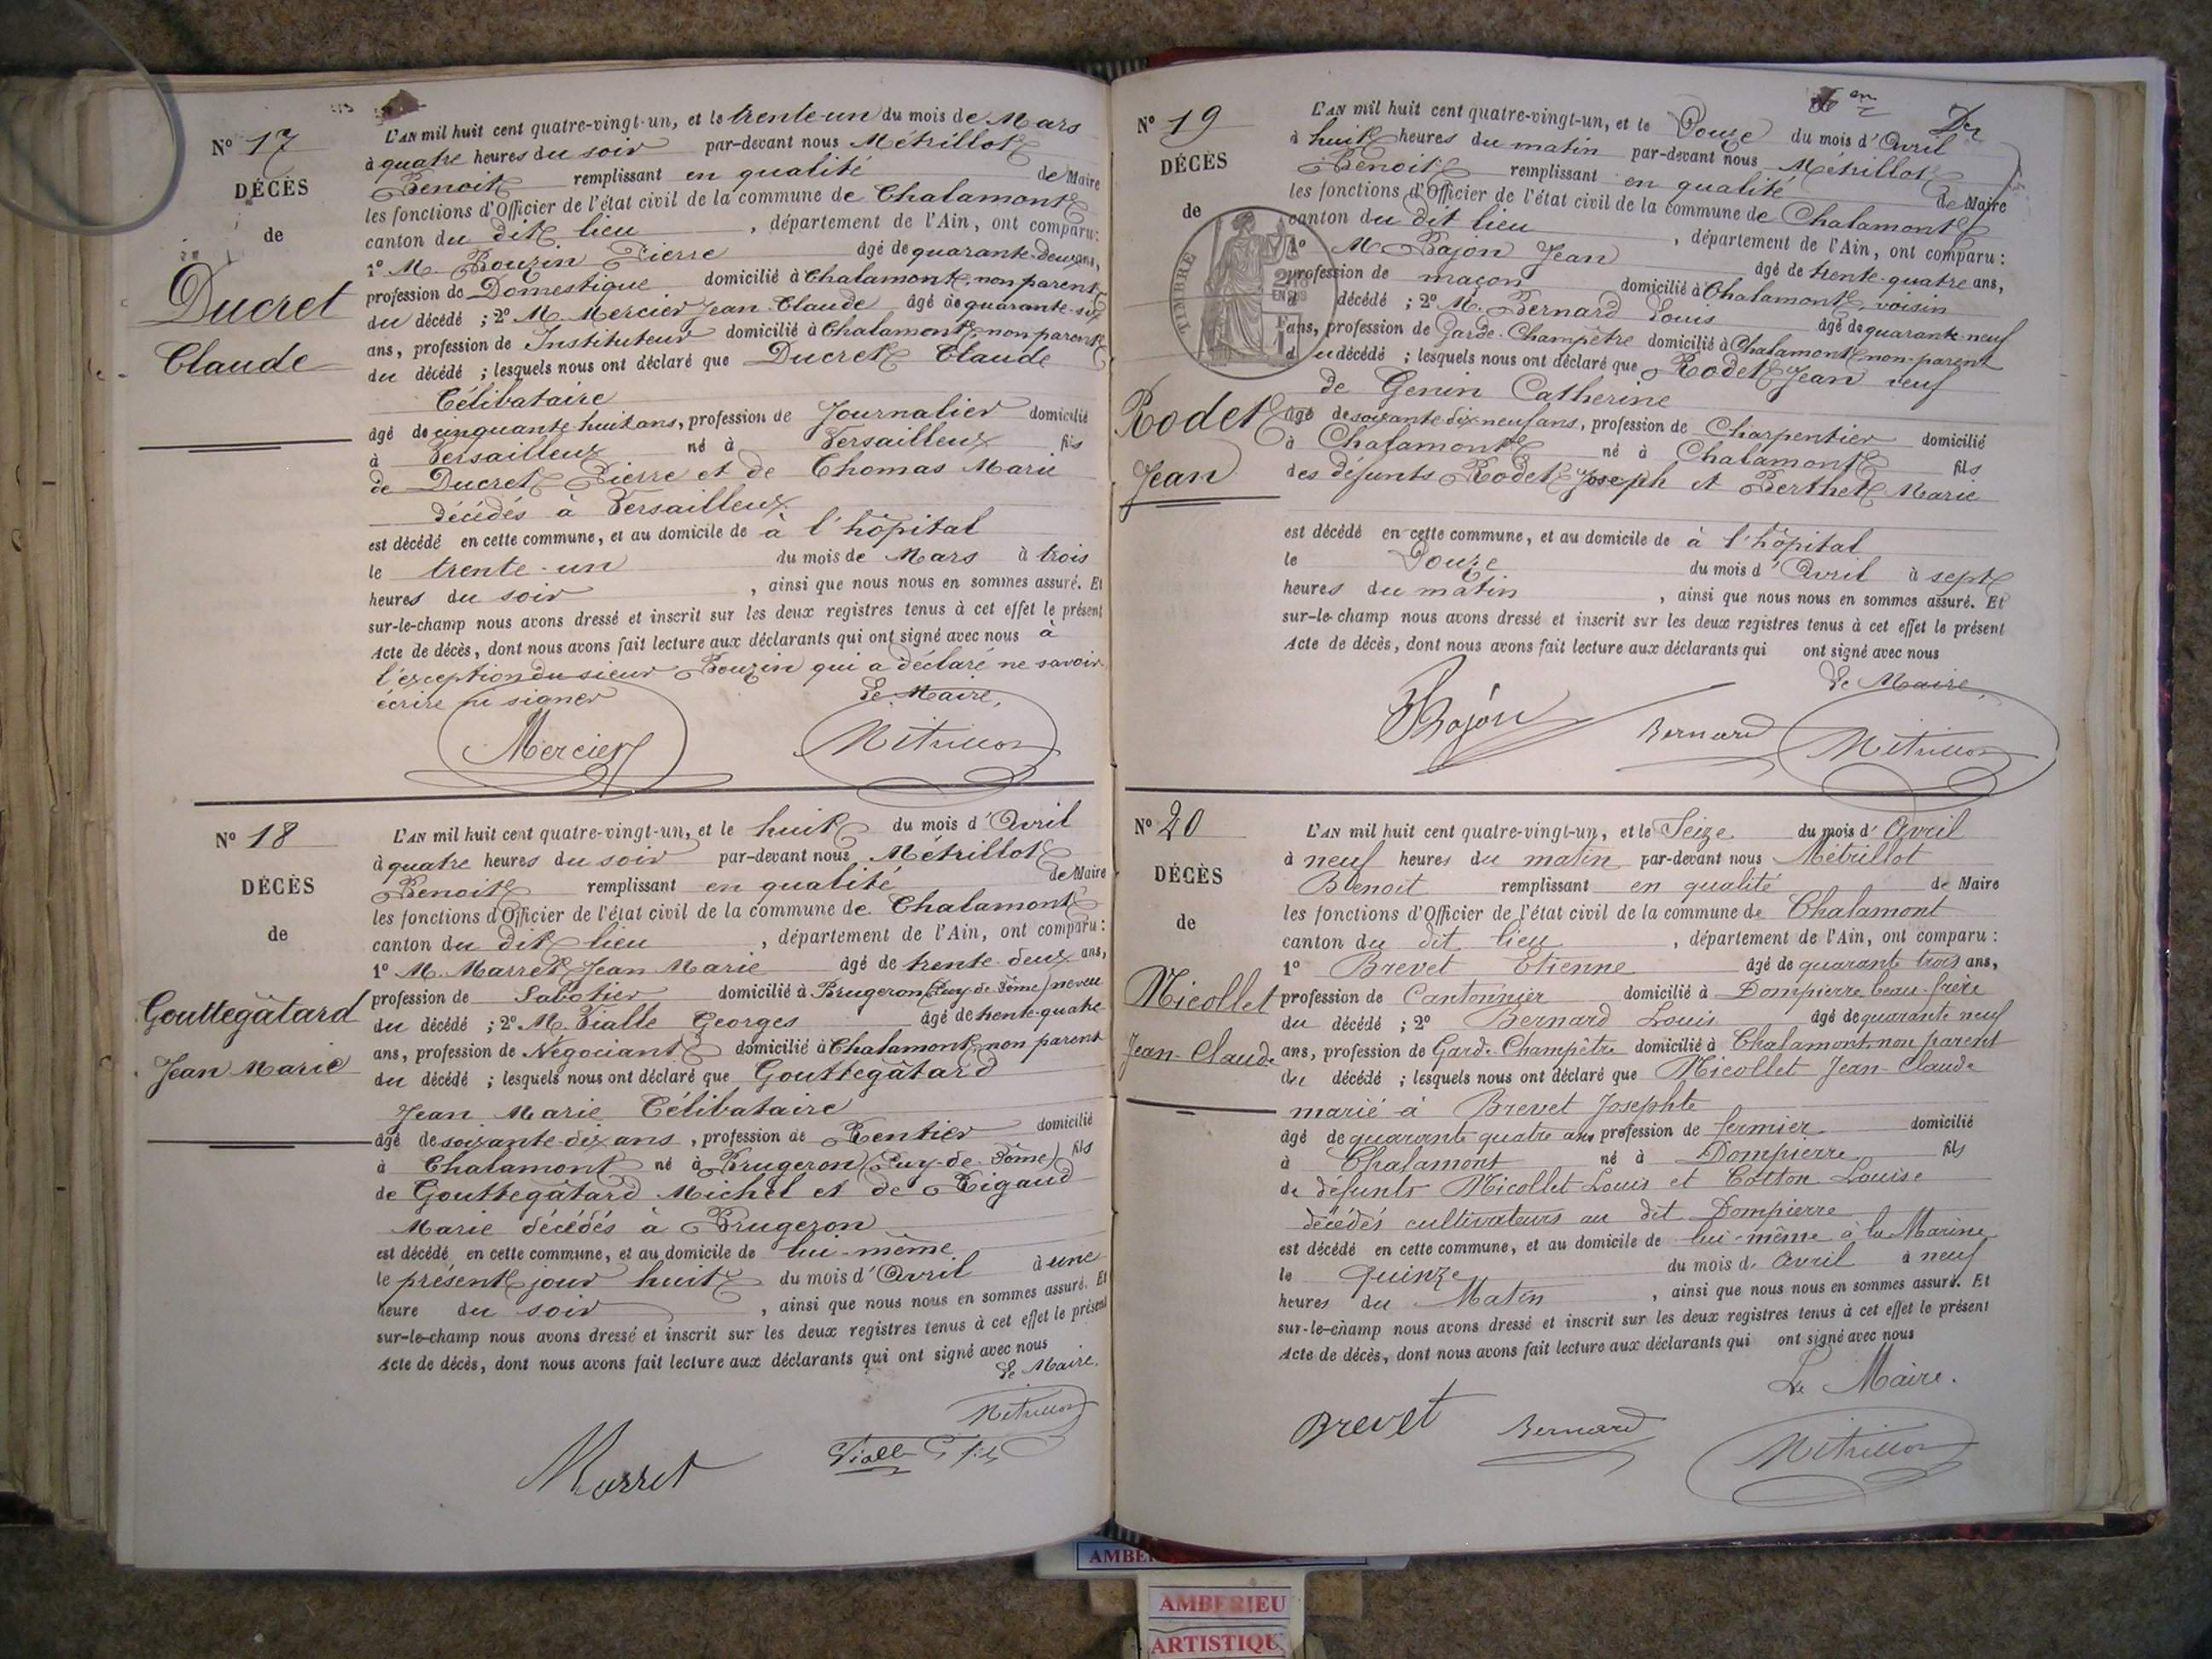 N° 17
DÉCÈS
de
Ducret
Claude
L'AN mil huit cent quatre-vingt-un, et le trente-un du mois de Mars
à quatre heures du soir par-devant nous Métrillot
Benoit remplissant en qualité de Maire
les fonctions d'Officier de l'état civil de la commune de Chalamont
canton du dit lieu , département de l'Ain, ont comparu:
1° M. Bouzin Pierre âgé de quarante-deux ans,
profession de Domestique domicilié à Chalamont, non parent
du décédé ; 2° M. Mercier Jean Claude âgé de quarante-six
ans, profession de Instituteur domicilié à Chalamont non parent
du décédé ; lesquels nous ont déclaré que Ducret Claude
Célibataire
âgé de cinquante huit ans, profession de Journalier domicilié
à Versailleux né à Versailleux fils
de Ducret Pierre et de Thomas Marie
décédés à Versailleux
est décédé en cette commune, et au domicile de à l'hôpital
le trente-un du mois de Mars à trois
heures du soir , ainsi que nous nous en sommes assuré. Et
sur-le-champ nous avons dressé et inscrit sur les deux registres tenus à cet effet le présent
Acte de décès, dont nous avons fait lecture aux déclarants qui ont signé avec nous à
l'exception du sieur Bouzin qui a déclaré ne savoir
écrire ni signer Le Maire,
Mercier Métrillot
N° 18
DÉCÈS
de
Gouttegâtard
Jean Marie
L'AN mil huit cent quatre-vingt-un, et le huit du mois d'Avril
à quatre heures du soir par-devant nous Métrillot
Benoit remplissant en qualité de Maire
les fonctions d'Officier de l'état civil de la commune de Chalamont
canton du dit lieu , département de l'Ain, ont comparu:
1° M. Marret Jean Marie âgé de trente-deux ans,
profession de Sabotier domicilié à Brugeron (Puy-de-Dôme) neveu
du décédé ; 2° M. Vialle Georges âgé de trente-quatre
ans, profession de Négociant domicilié à Chalamont, non parent
du décédé ; lesquels nous ont déclaré que Gouttegâtard
Jean Marie Célibataire
âgé de soixante-dix ans, profession de Rentier domicilié
à Chalamont né à Brugeron (Puy-de-Dôme) fils
de Gouttegâtard Michel et de Rigaud
Marie décédés à Brugeron
est décédé en cette commune, et au domicile de lui-même
le présent jour huit du mois d'Avril à une
heure du soir , ainsi que nous nous en sommes assuré. Et
sur-le-champ nous avons dressé et inscrit sur les deux registres tenus à cet effet le présent
Acte de décès, dont nous avons fait lecture aux déclarants qui ont signé avec nous
Le Maire.
Métrillot
Marret Vialle G fils
N° 19
DÉCÈS
de
TIMBRE
Rodet
Jean
L'AN mil huit cent quatre-vingt-un, et le Douze du mois d'Avril
à huit heures du matin par-devant nous Métrillot
Benoit remplissant en qualité de Maire
les fonctions d'Officier de l'état civil de la commune de Chalamont
canton du dit lieu , département de l'Ain, ont comparu:
1° M. Bajon Jean âgé de trente-quatre ans,
profession de maçon domicilié à Chalamont, voisin
décédé ; 2° M. Bernard Louis âgé de quarante-neuf
ans, profession de Garde-Champêtre domicilié à Chalamont non-parent
du décédé ; lesquels nous ont déclaré que Rodet Jean veuf
de Genin Catherine
âgé de soixante-dix-neuf ans, profession de Charpentier domicilié
à Chalamont né à Chalamont fils
des défunts Rodet Joseph et Berthet Marie
est décédé en cette commune, et au domicile de à l'hôpital
le Douze du mois d'Avril à sept
heures du matin , ainsi que nous nous en sommes assuré. Et
sur-le-champ nous avons dressé et inscrit sur les deux registres tenus à cet effet le présent
Acte de décès, dont nous avons fait lecture aux déclarants qui ont signé avec nous
Le Maire,
Bajon Bernard Métrillot
N° 20
DÉCÈS
de
Nicollet
Jean-Claude
L'AN mil huit cent quatre-vingt-un, et le Seize du mois d'Avril
à neuf heures du matin par-devant nous Métrillot
Benoit remplissant en qualité de Maire
les fonctions d'Officier de l'état civil de la commune de Chalamont
canton du dit lieu , département de l'Ain, ont comparu:
1° Brevet Etienne âgé de quarante trois ans,
profession de Cantonnier domicilié à Dompierre beau-frère
du décédé ; 2° Bernard Louis âgé de quarante neuf
ans, profession de Garde-Champêtre domicilié à Chalamont non parent
du décédé ; lesquels nous ont déclaré que Nicollet Jean-Claude
marié à Brevet Josephte
âgé de quarante quatre ans profession de fermier domicilié
à Chalamont né à Dompierre fils
de défunts Nicollet Louis et Cotton Louise
décédés cultivateurs au dit Dompierre
est décédé en cette commune, et au domicile de lui-même à la Marine
le quinze du mois d'Avril à neuf
heures du Matin , ainsi que nous nous en sommes assuré. Et
sur-le-champ nous avons dressé et inscrit sur les deux registres tenus à cet effet le présent
Acte de décès, dont nous avons fait lecture aux déclarants qui ont signé avec nous
Le Maire.
Brevet Bernard Métrillot
AMBERIEU
ARTISTIQU